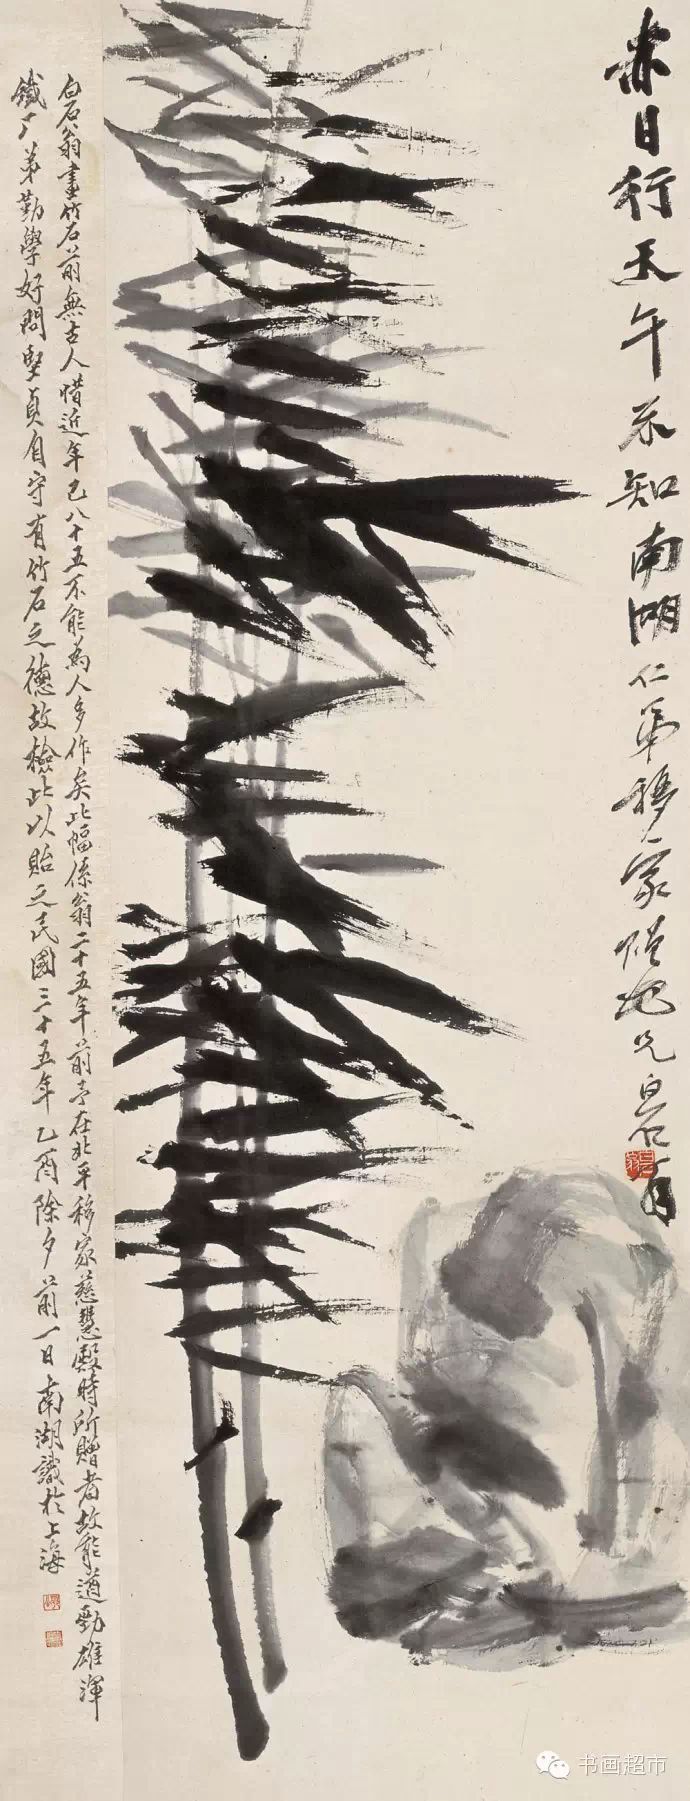 赤日行天午不知南湖仁弟移家 兄白石
白石翁畫竹石前無古人惜近年已八十五不能為人多作矣此幅係翁二十五年前予在北平移家慈慧殿時所贈者故能遒勁雄渾
鐵厂弟勤學好問堅貞自守有竹石之德故檢此以貽之民國三十五年乙酉除夕前一日南湖識於上海
书画超市